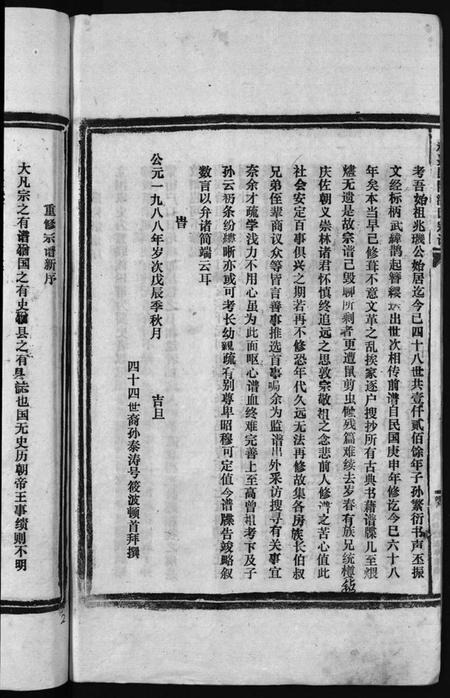 考吾始祖兆璣公始居迄今已四十八世共壹仟贰佰馀年子孙繁衍书声丕振
文经标柄武緯鹊起簪纓出世次相传前谱自民国庚申年修迄今已六十八
年矣本当早已修葺不意文革之乱挨家逐户搜抄所有古典书藉谱牒几至煨
燼无遗是故宗谱已毁聊所剩者更遭鼠剪虫蝕残篇难续去岁春有族兄统樽
佐朝义崇林诸君怀慎终追远之思敦宗敬祖之念悲前人修谱之苦心值此
社会安定百事俱兴之期若再不修恐年代久远无法再修故集各房族长伯叔
兄弟侄辈商议众等皆言善事推选首事嘱余为监谱出外采访搜寻有关事宜
奈余才疏学浅力不用心虽为此面呕心谱血终难完善上至高曾祖考下及子
孙云礽条纷缕晰亦或可考长幼亲疏有别尊卑昭穆可定值今谱牒告竣略叙
数言以弁诸简端云耳
旹
公元一九八八年岁次戊辰季秋月
吉旦
四十四世裔孙泰涛号筱波顿首拜撰
重修宗谱新序
大凡宗之有谱猶国之有史猶县之有县誌也国无史历朝帝王事绩则不明
2